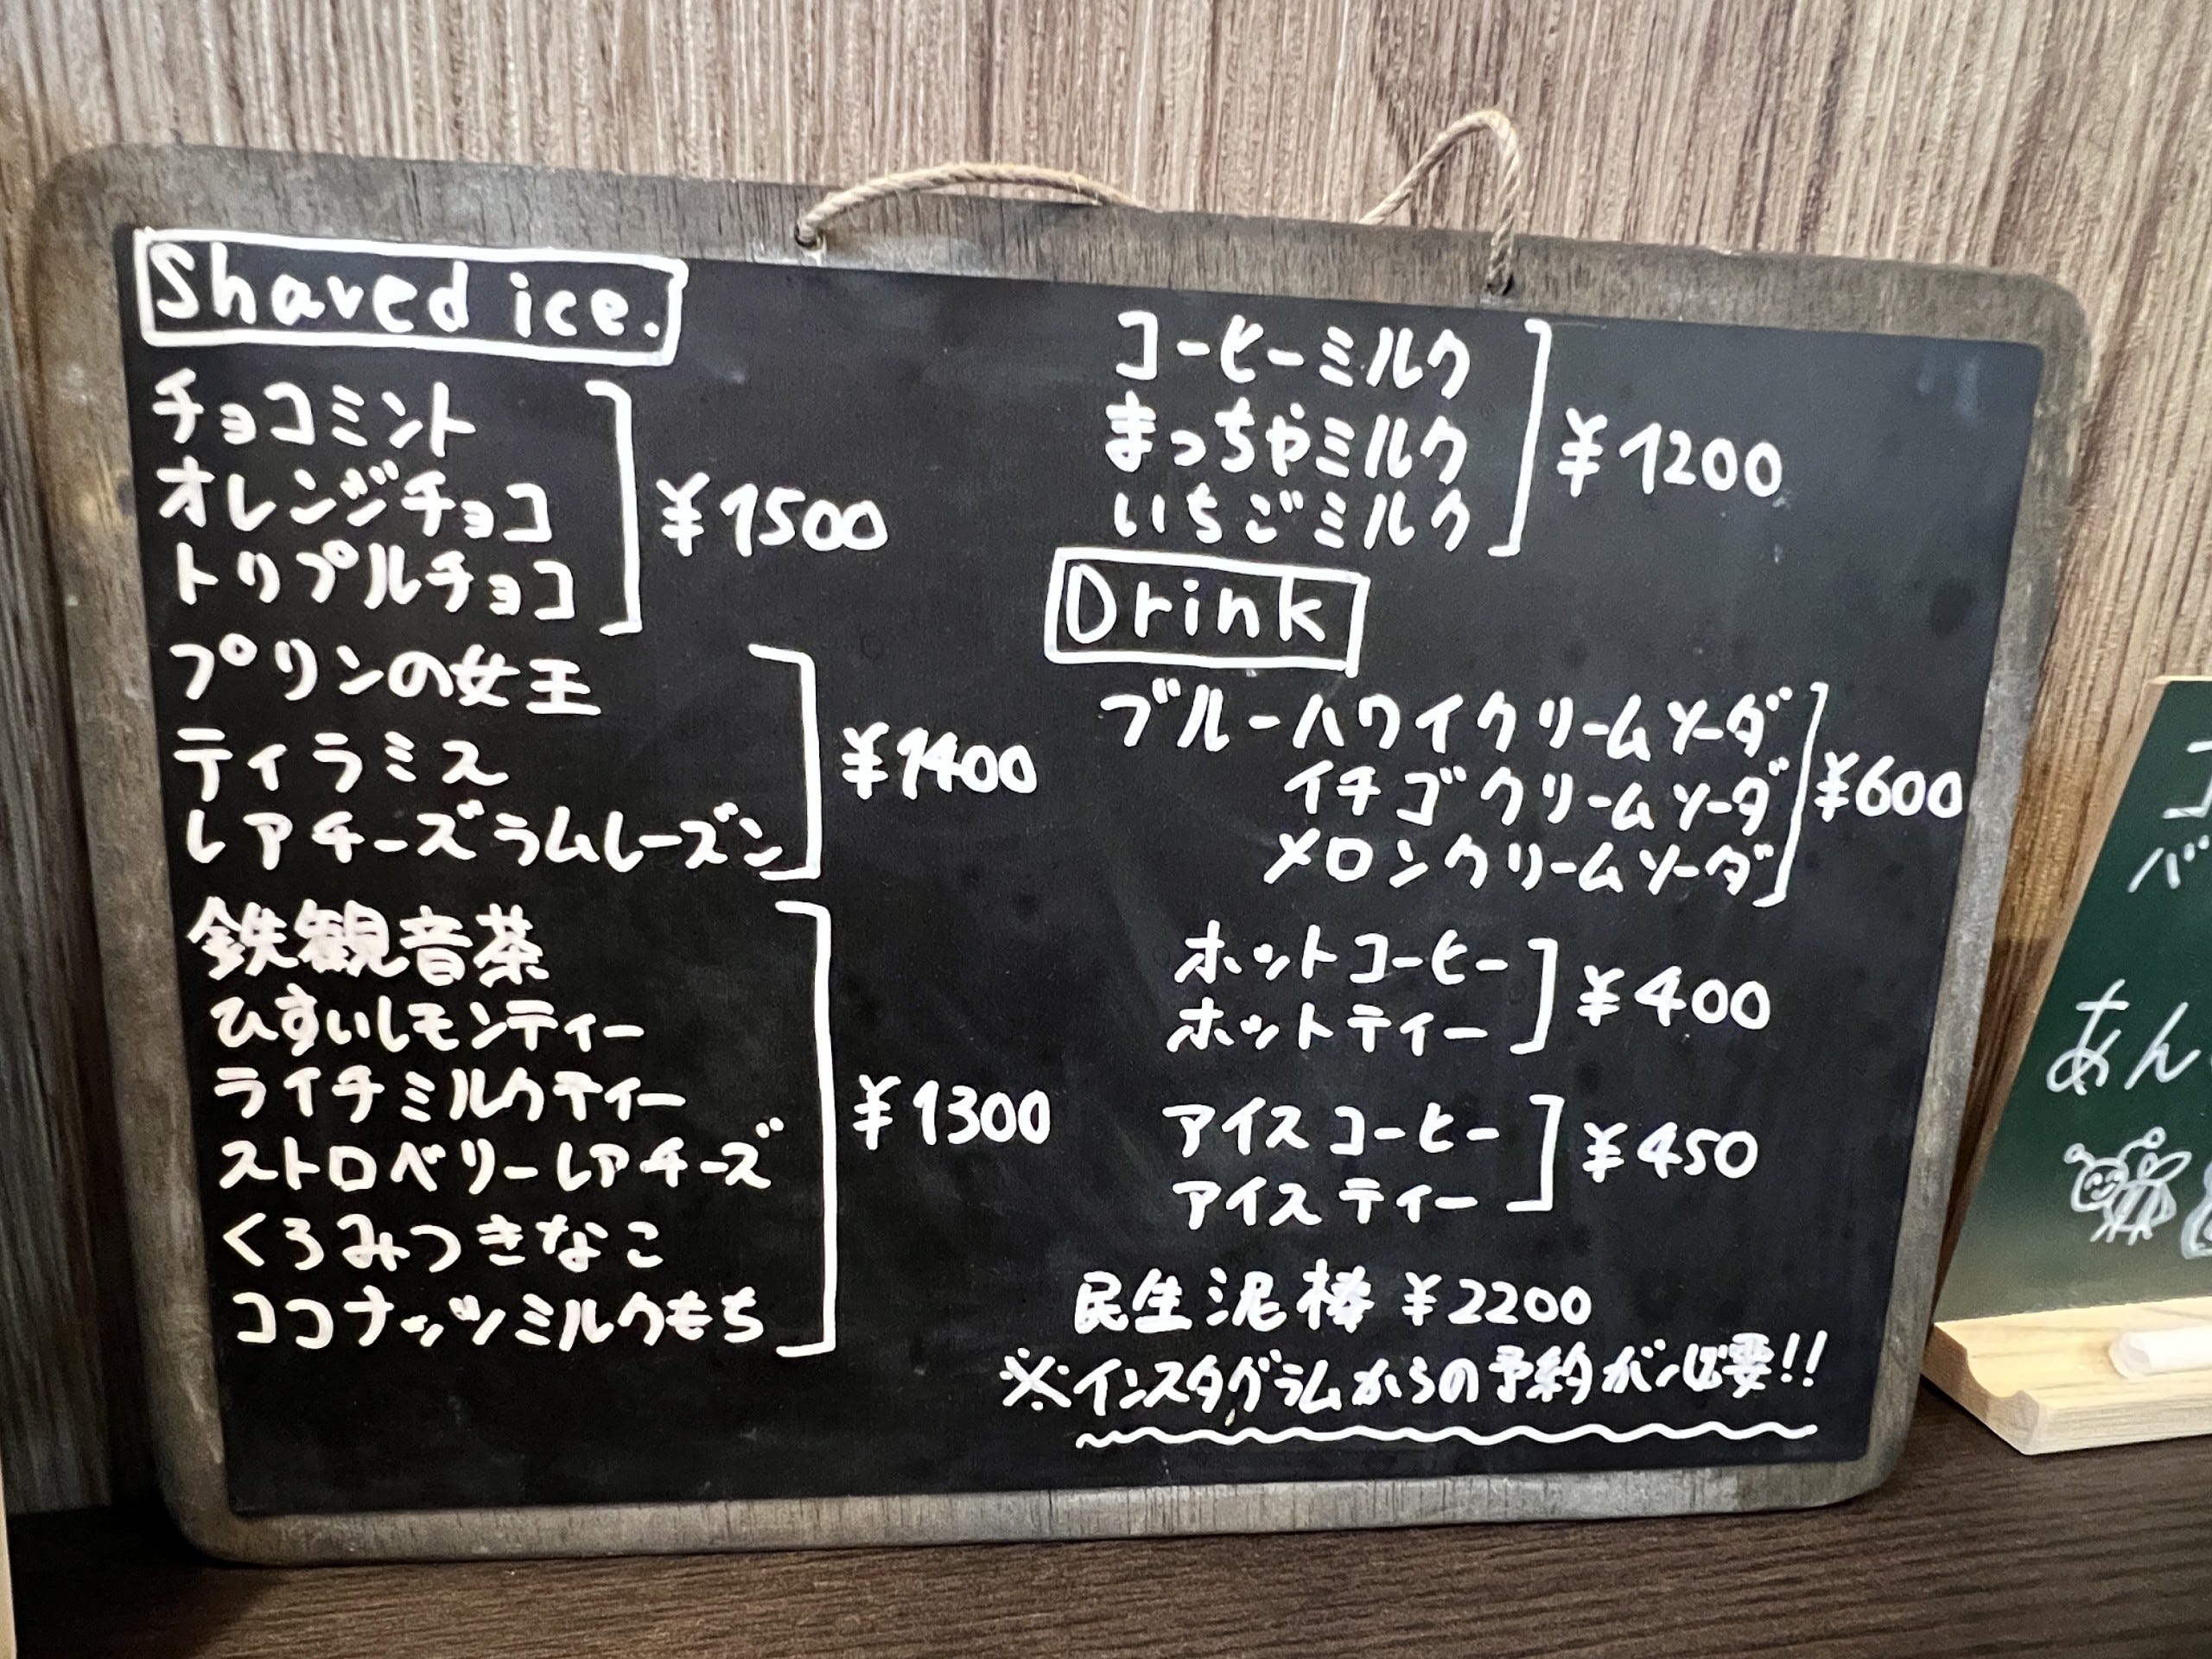 Shaved ice.
チョコミント
オレンジチョコ
トリプルチョコ
¥1500
プリンの女王
ティラミス
レアチーズラムレーズン
¥1400
鉄観音茶
ひすいレモンティー
ライチミルクティー
ストロベリーレアチーズ
くろみつきなこ
ココナッツミルクもち
¥1300
コーヒーミルク
まっちゃミルク
いちごミルク
¥1200
Drink
ブルーハワイクリームソーダ
イチゴクリームソーダ
メロンクリームソーダ
¥600
ホットコーヒー
ホットティー
¥400
アイスコーヒー
アイスティー
¥450
民生泥棒 ¥2200
※インスタグラムからの予約が必要!!
コ
バ
あん